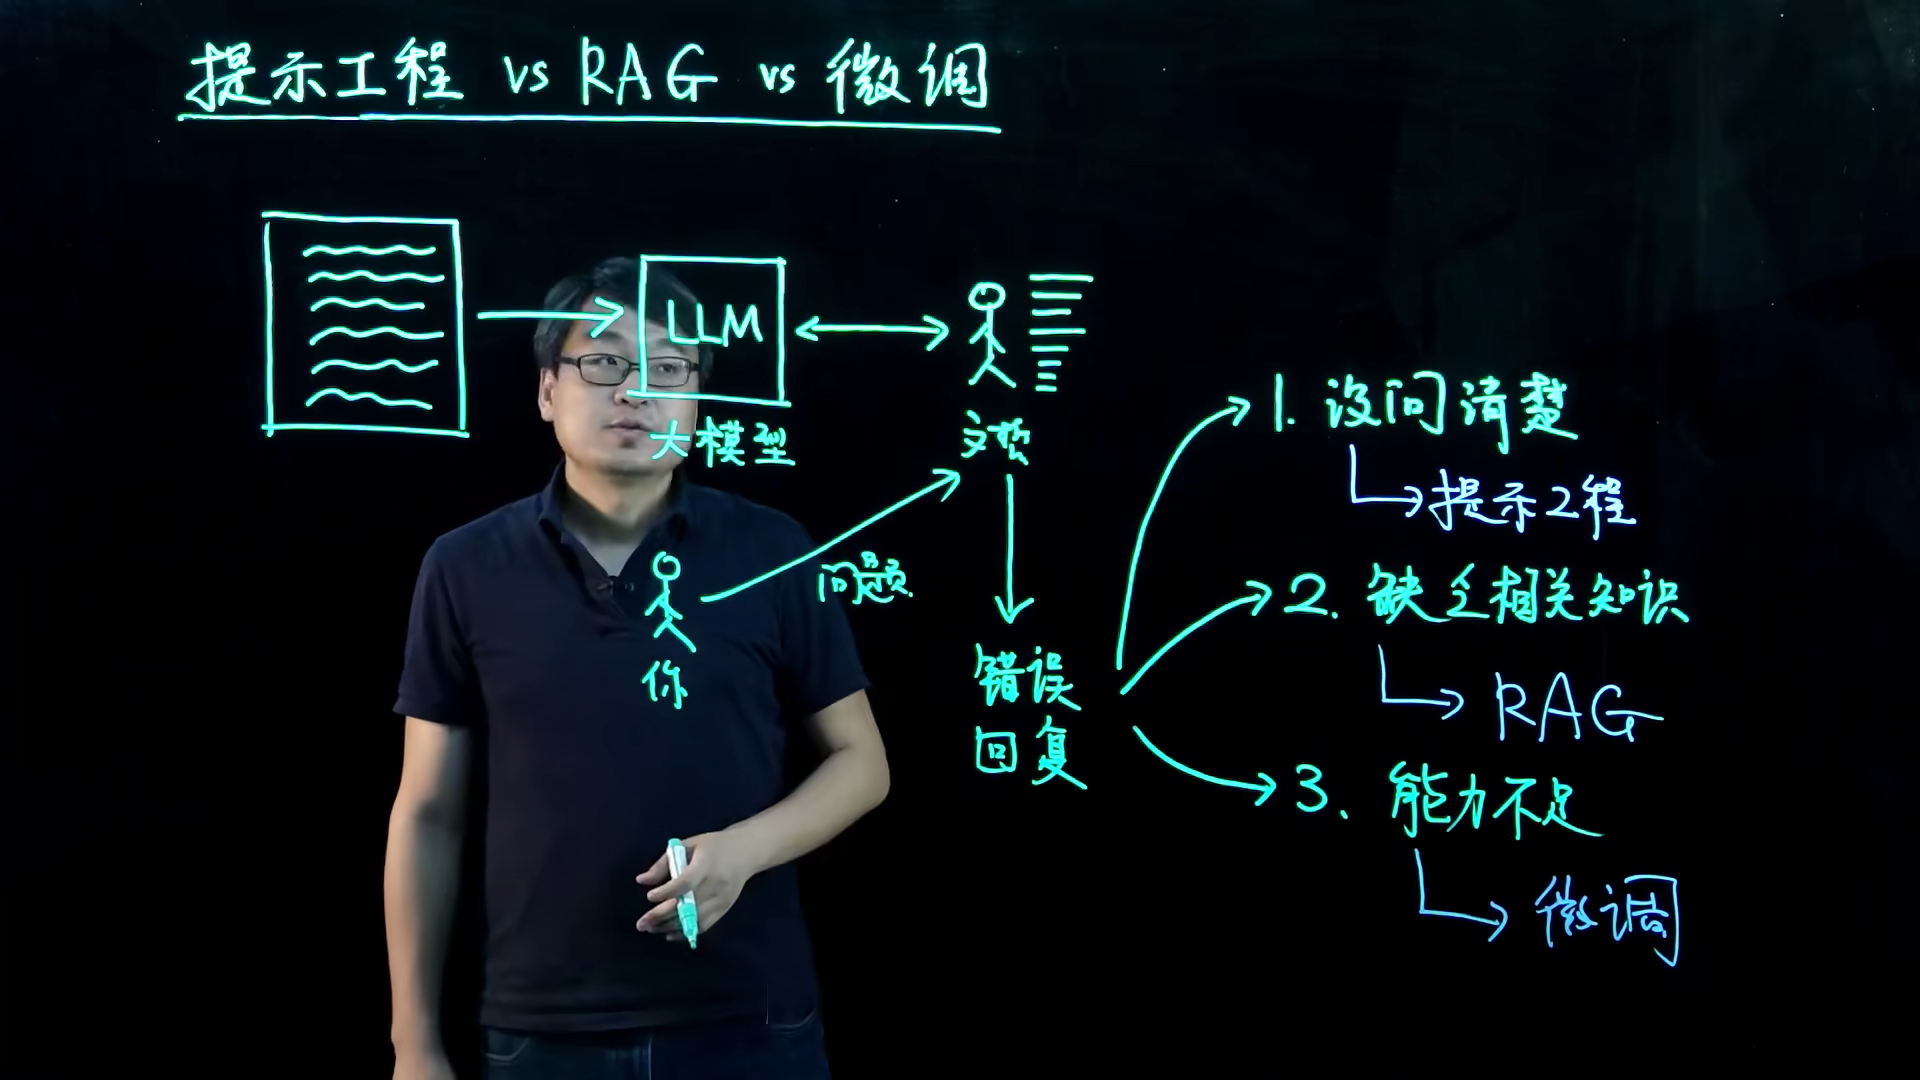 提示工程 vs RAG vs 微调
LLM
大模型
问题
你
错误
回复
1. 没问清楚
提示工程
2. 缺乏相关知识
RAG
3. 能力不足
微调